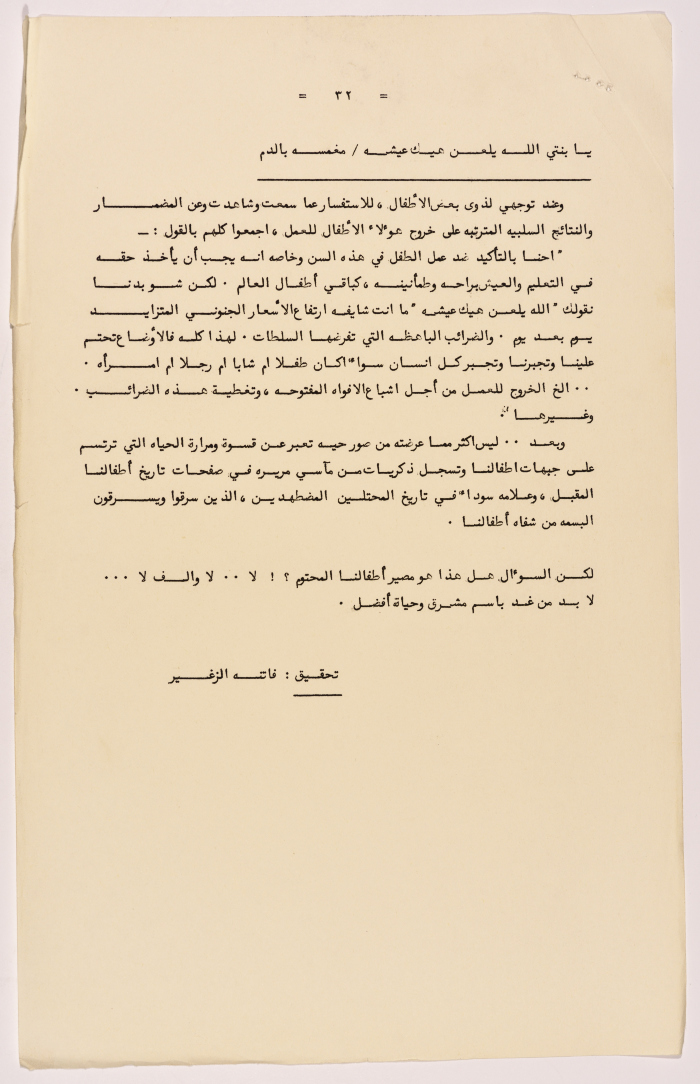 = ٣٢ =
يا بنتي الله يلعن هيك عيشه / مغمسه بالدم
وعند توجهي لذوى بعض الأطفال ، للاستفسار عما سمعت وشاهدت وعن المضمار
والنتائج السلبيه المترتبه على خروج هوءلاء الأطفال للعمل ، اجمعوا كلهم بالقول : ـ
" احنا بالتأكيد ضد عمل الطفل في هذه السن وخاصه انه يجب أن يأخذ حقه
في التعليم والعيش براحه وطمأنينه ، كباقي أطفال العالم . لكن شو بدنا
نقولك " الله يلعن هيك عيشه " ما انت شايفه ارتفاع الأسعار الجنوني المتزايد
يوم بعد يوم . والضرائب الباهظه التي تفرضها السلطات . لهذا كله فالأوضاع تحتم
علينا وتجبرنا وتجبر كل انسان سواء اكان طفلا ام شابا ام رجلا ام امرأه .
.. الخ الخروج للعمل من أجل اشباع الافواه المفتوحه ، وتغطية هذه الضرائب .
وغيرها ".
وبعد .. ليس اكثر مما عرضته من صور حيه تعبر عن قسوة ومرارة الحياه التي ترتسم
على جبهات اطفالنا وتسجل ذكريات من مآسي مريره في صفحات تاريخ أطفالنا
المقبل ، وعلامه سوداء في تاريخ المحتلين المضطهدين ، الذين سرقوا ويسرقون
البسمه من شفاه أطفالنا .
لكن السوءال هل هذا هو مصير أطفالنا المحتوم ؟ ! لا .. لا والف لا ...
لا بد من غد باسم مشرق وحياة أفضل .
تحقيق : فاتنه الزغير